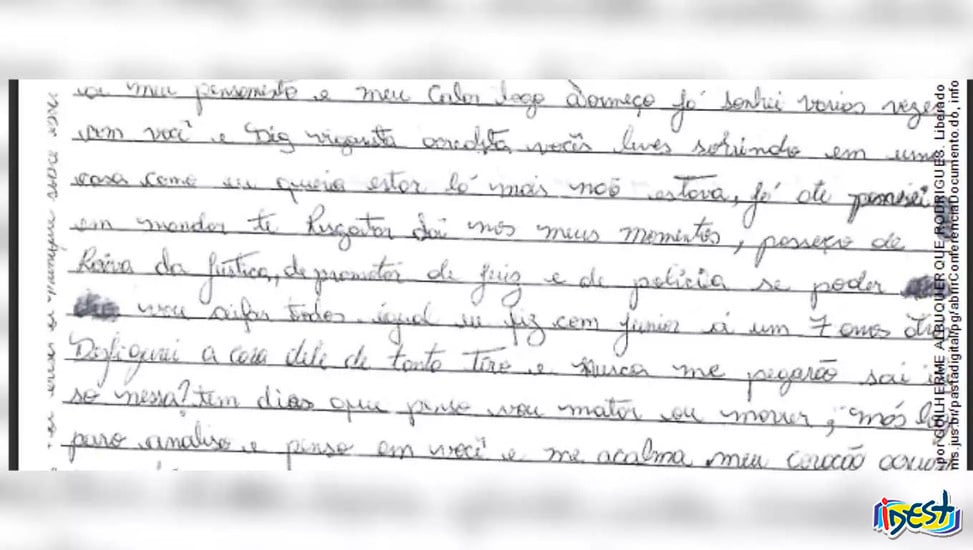 meu pensamento e meu logo Adormeço já sonhei varias vezes
com você e Dig vigarista acredita vocês livres sorindo em uma
casa como eu queria estar lá mais naõ estava, já ate pensei
em mandar te Rusgatar dai nos meus momentos, de
Raiva da justiça, de promotor de juiz e de policia se poder
vou todos igual eu fiz com junior a um 7 anos
Disfigurei a cara dele de tanto Tiro e Nunca me pegarão sai
so nessa? tem dias que penso vou matar ou morrer, más
paro analiso e penso em você e me acalma meu coração
por GUILHERME ALBUQUERQUE RODRIGUES. Liberado
ms.jus.br/pastadigital/pg/abrirConferenciaDocumento.do, info
iDEST